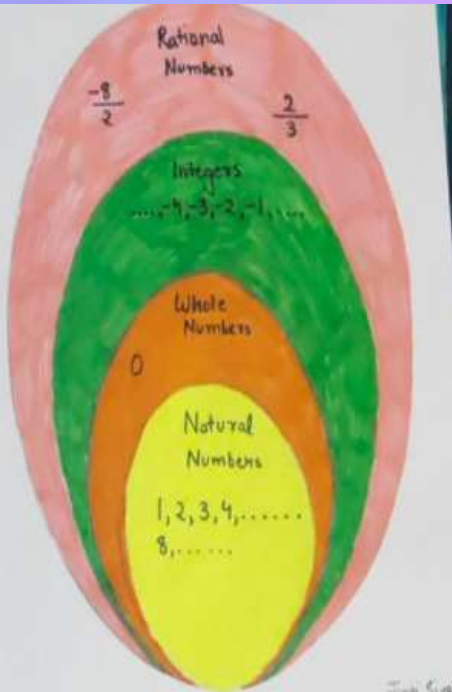 Rational
Numbers
-8/2
2/3
Integers
....,-4,-3,-2,-1,....
Whole
Numbers
0
Natural
Numbers
1, 2, 3, 4,......
8,......